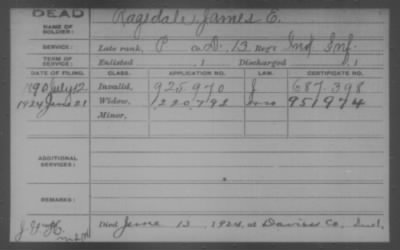 DEAD
NAME OF SOLDIER: Ragsdale, James E.
SERVICE: Late rank, P Co. D, 13 Reg't Ind Inf.
TERM OF SERVICE: Enlisted , 1 Discharged , 1
DATE OF FILING. CLASS. APPLICATION NO. LAW. CERTIFICATE NO.
1890 July 12 Invalid, 925.970 J 687.398
1924 June 21 Widow, 1220792 951974
Minor,
ADDITIONAL SERVICES:
REMARKS:
Died June 13, 1924, at Daviess Co, Ind,